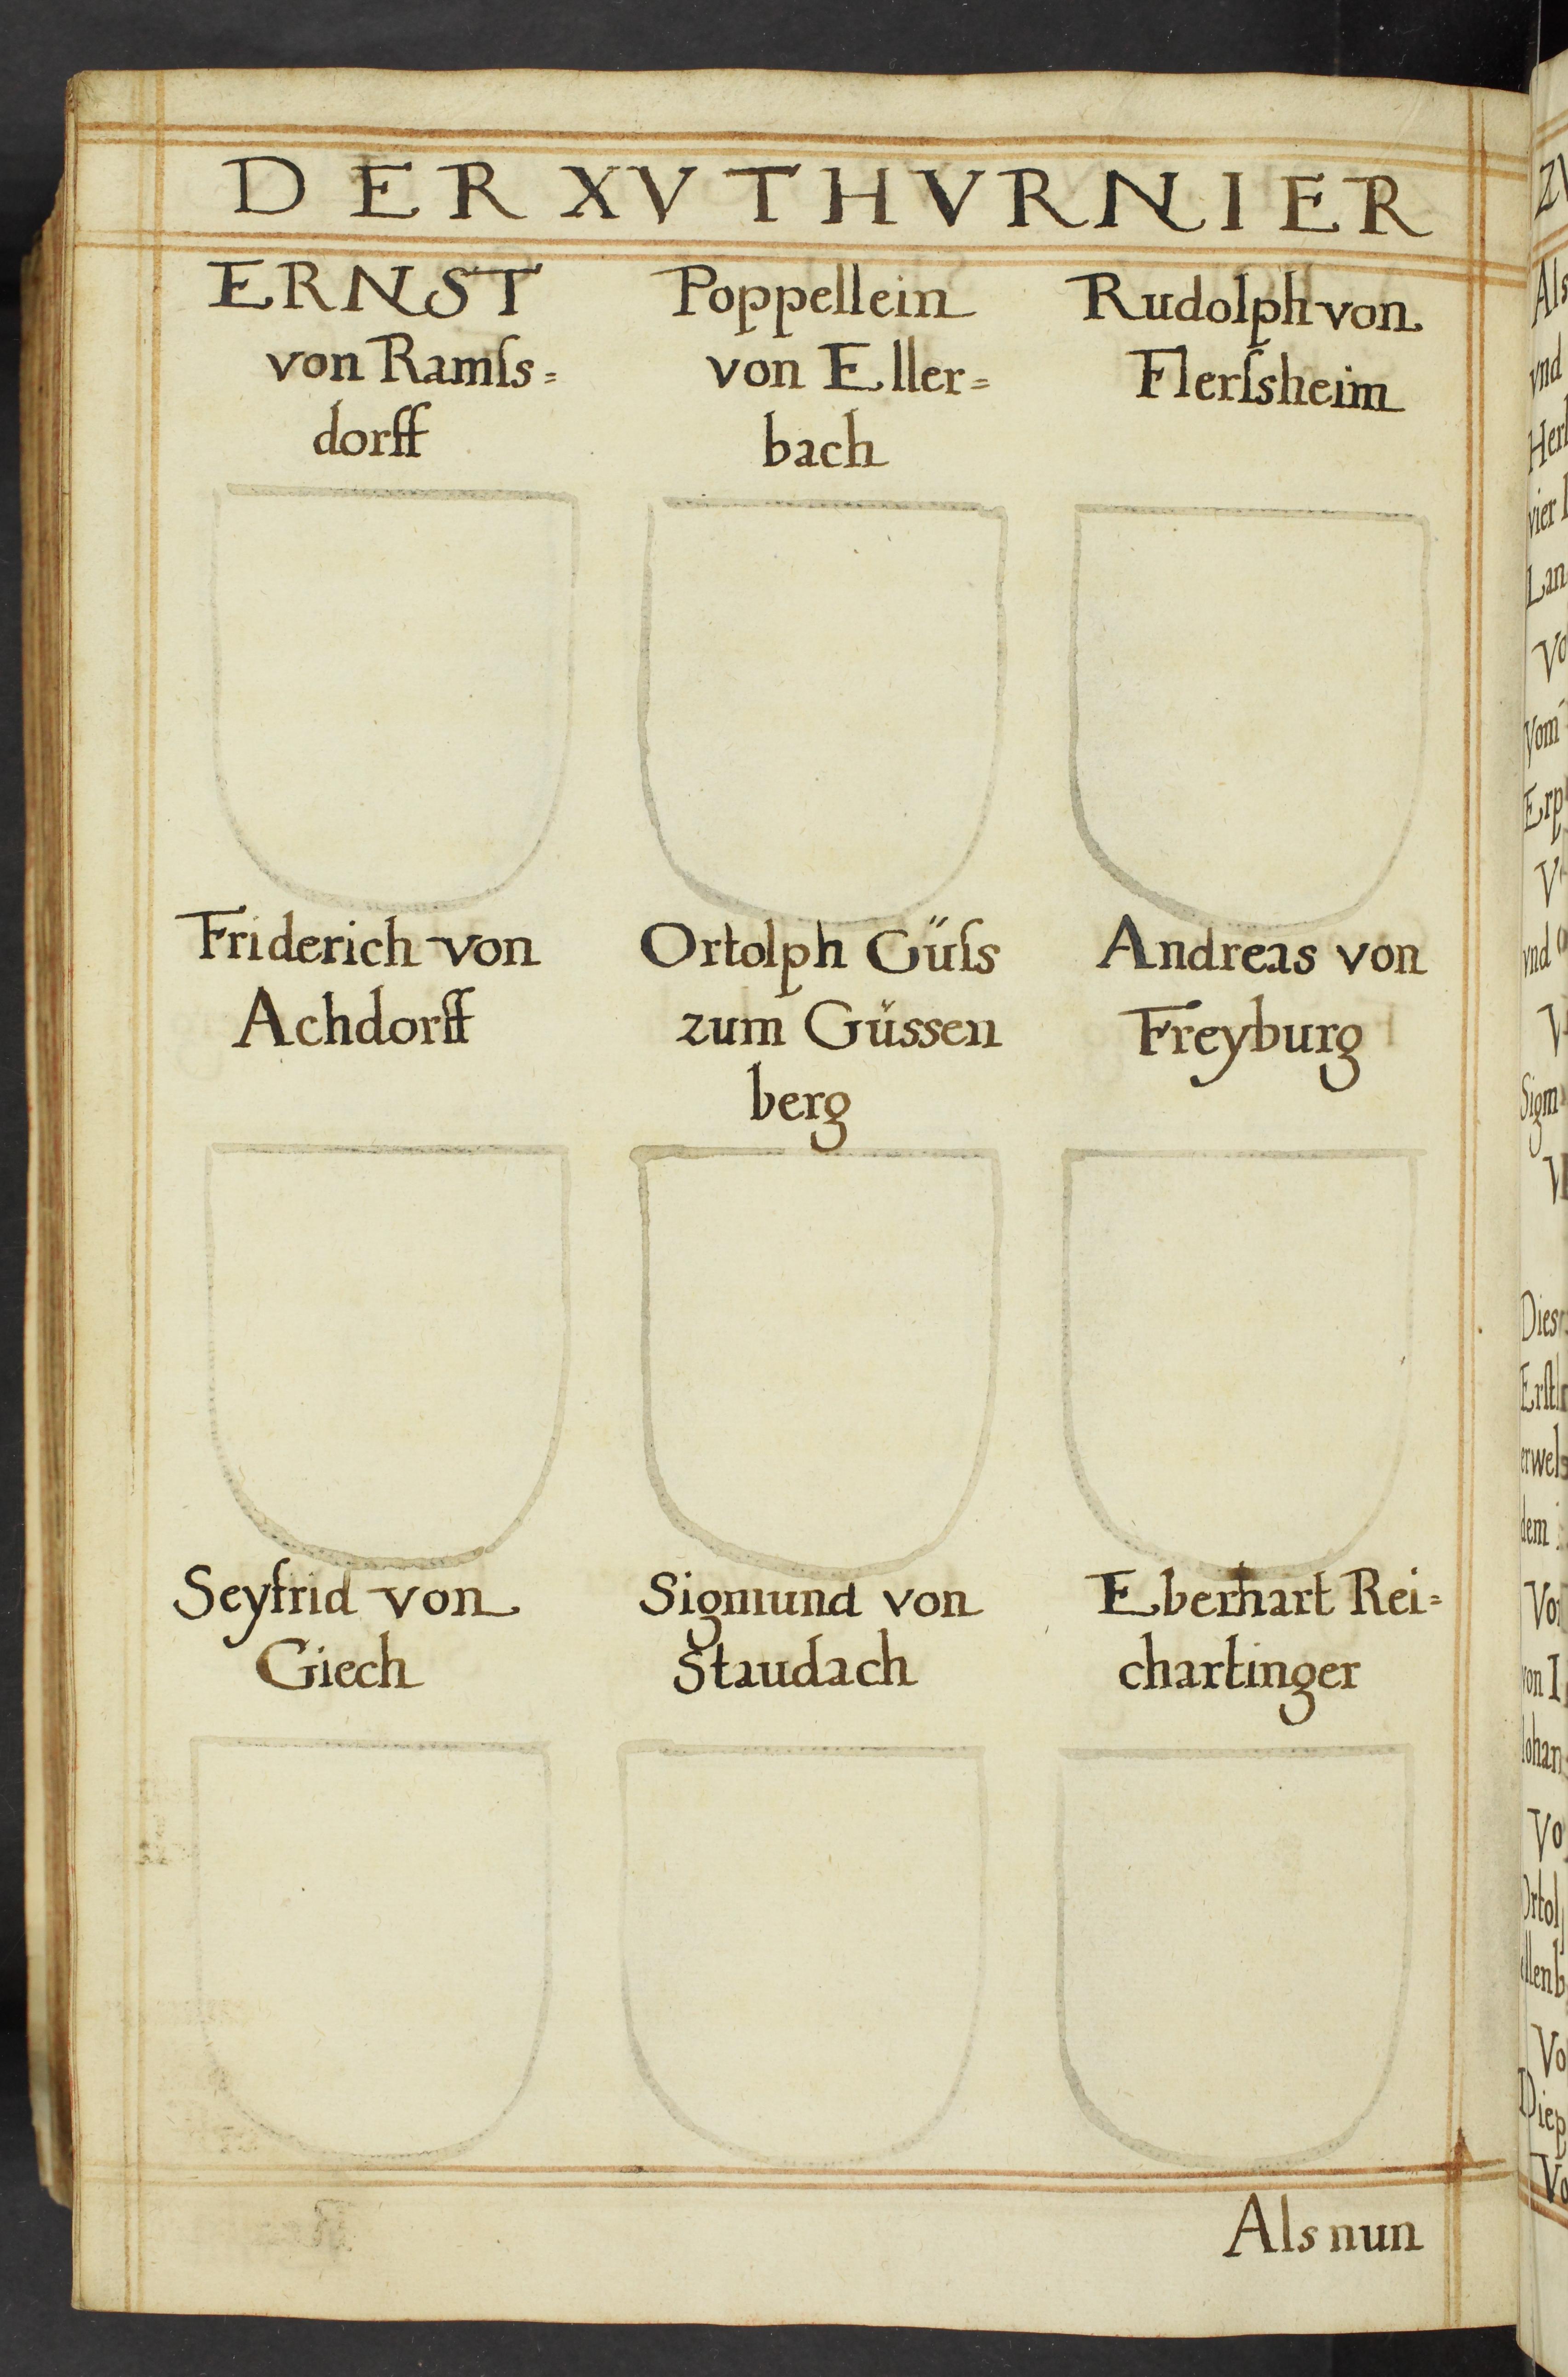 DER XV THVRNIER
ERNST
von Ramſs=
dorff
Poppellein
von Eller=
bach
Rudolph von
Flerſsheim
Friderich von
Achdorff
Ortolph Güſs
zum Güssen
berg
Andreas von
Freyburg
Seyfrid von
Giech
Sigmund von
Staudach
Eberhart Rei=
chartinger
Als nun
Als
vnd
vier
Vo
Vom
vnd
Dies
dem
Vo
Vo
Vo